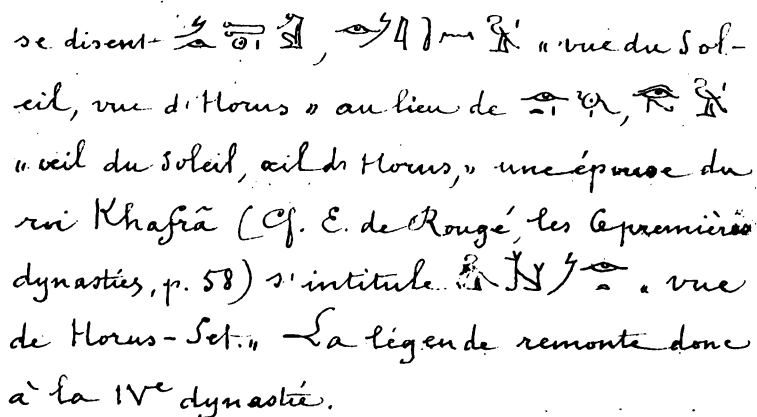 se disent , « vue du Sol-
eil, vue d'Horus » au lieu de ,
« œil du Soleil, œil de Horus, » une épouse du
roi Khafrã (Cf. E. de Rougé, les 6 premières
dynasties, p. 58) s'intitule « vue
de Horus-Set. » La légende remonte donc
à la IVe dynastie.